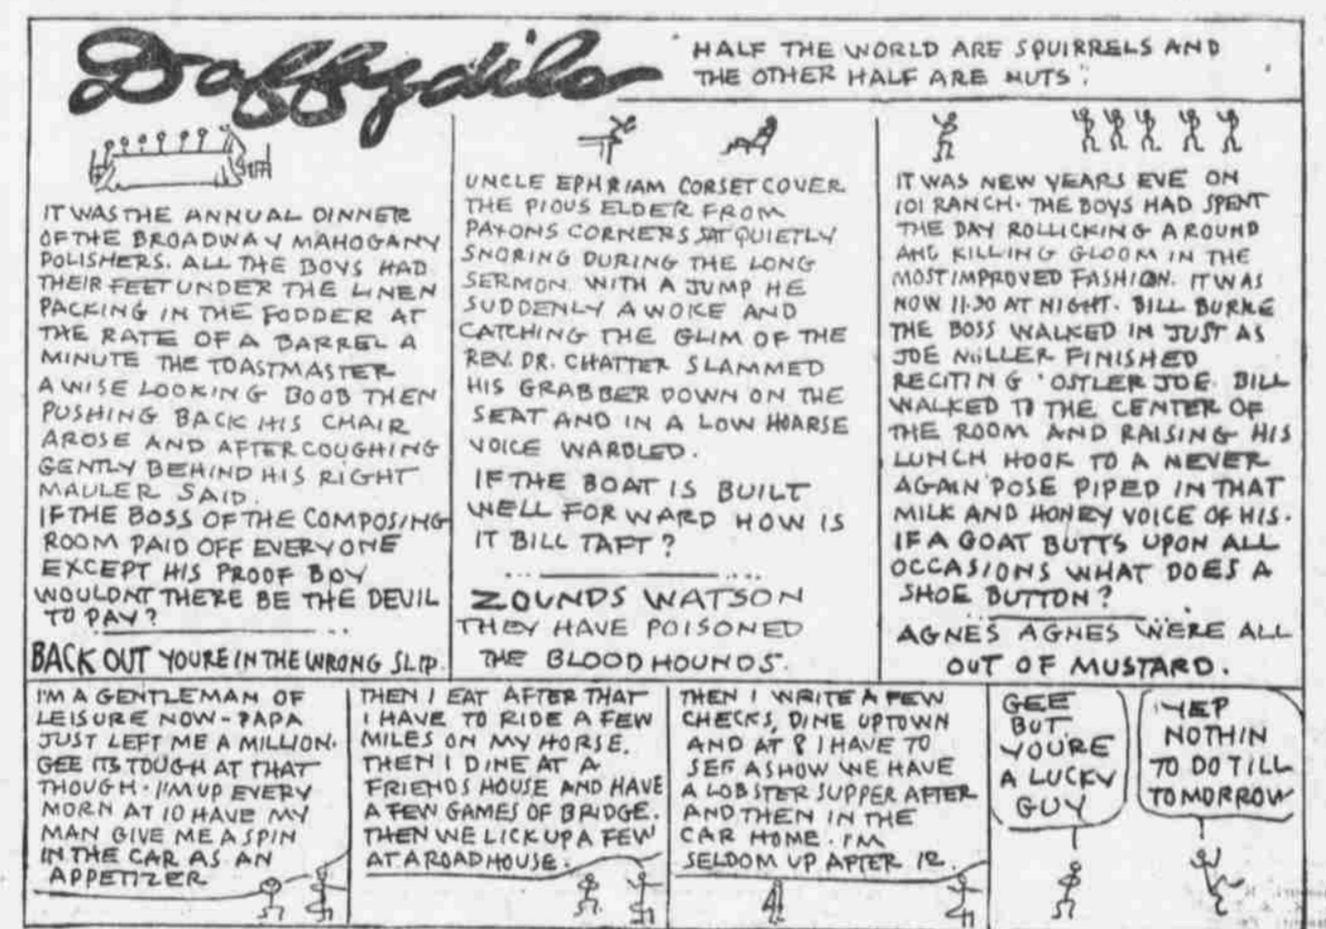 Daffydils
HALF THE WORLD ARE SQUIRRELS AND
THE OTHER HALF ARE NUTS".
IT WAS THE ANNUAL DINNER
OF THE BROADWAY MAHOGANY
POLISHERS. ALL THE BOYS HAD
THEIR FEET UNDER THE LINEN
PACKING IN THE FODDER AT
THE RATE OF A BARREL A
MINUTE THE TOASTMASTER
A WISE LOOKING BOOB THEN
PUSHING BACK HIS CHAIR
AROSE AND AFTER COUGHING
GENTLY BEHIND HIS RIGHT
MAULER SAID.
IF THE BOSS OF THE COMPOSING
ROOM PAID OFF EVERYONE
EXCEPT HIS PROOF BOY
WOULDNT THERE BE THE DEVIL
TO PAY?
BACK OUT YOURE IN THE WRONG SLIP.
UNCLE EPHRIAM CORSETCOVER
THE PIOUS ELDER FROM
PAXONS CORNERS SAT QUIETLY
SNORING DURING THE LONG
SERMON. WITH A JUMP HE
SUDDENLY AWOKE AND
CATCHING THE GLIM OF THE
REV. DR. CHATTER SLAMMED
HIS GRABBER DOWN ON THE
SEAT AND IN A LOW HOARSE
VOICE WARBLED.
IF THE BOAT IS BUILT
WELL FORWARD HOW IS
IT BILL TAFT?
ZOUNDS WATSON
THEY HAVE POISONED
THE BLOODHOUNDS.
IT WAS NEW YEARS EVE ON
101 RANCH. THE BOYS HAD SPENT
THE DAY ROLLICKING AROUND
AND KILLING GLOOM IN THE
MOST IMPROVED FASHION. IT WAS
NOW 11.30 AT NIGHT. BILL BURKE
THE BOSS WALKED IN JUST AS
JOE MILLER FINISHED
RECITING 'OSTLER JOE. BILL
WALKED TO THE CENTER OF
THE ROOM AND RAISING HIS
LUNCH HOOK TO A NEVER
AGAIN POSE PIPED IN THAT
MILK AND HONEY VOICE OF HIS.
IF A GOAT BUTTS UPON ALL
OCCASIONS WHAT DOES A
SHOE BUTTON?
AGNES AGNES WERE ALL
OUT OF MUSTARD.
I'M A GENTLEMAN OF
LEISURE NOW - PAPA
JUST LEFT ME A MILLION.
GEE ITS TOUGH AT THAT
THOUGH. I'M UP EVERY
MORN AT 10 HAVE MY
MAN GIVE ME A SPIN
IN THE CAR AS AN
APPETIZER
THEN I EAT AFTER THAT
I HAVE TO RIDE A FEW
MILES ON MY HORSE.
THEN I DINE AT A
FRIENDS HOUSE AND HAVE
A FEW GAMES OF BRIDGE.
THEN WE LICK UP A FEW
AT A ROADHOUSE.
THEN I WRITE A FEW
CHECKS, DINE UPTOWN
AND AT 8 I HAVE TO
SEE A SHOW WE HAVE
A LOBSTER SUPPER AFTER
AND THEN IN THE
CAR HOME. I'M
SELDOM UP AFTER 12.
GEE
BUT
YOU'RE
A LUCKY
GUY
YEP
NOTHIN
TO DO TILL
TOMORROW